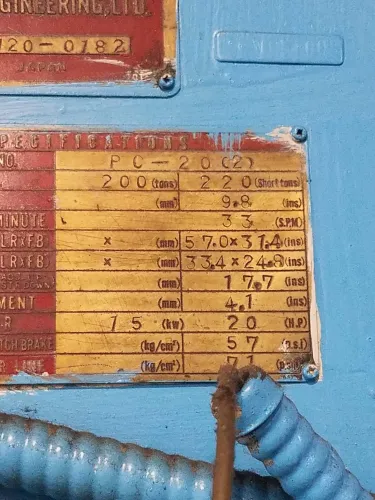 GINEERING, LTD.
120-0182
JAPAN
SPECIFICATIONS
NO. PC-20(2)
200 (tons) 220 (Short tons)
(mm) 9.8 (ins)
MINUTE 33 (S.P.M)
(LRXFB) × (mm) 57.0×31.4 (ins)
(LRXFB) × (mm) 33.4×24.8 (ins)
(mm) 17.7 (ins)
MENT (mm) 4.1 (ins)
R 15 (kw) 20 (H.P)
TCH BRAKE (kg/cm²) 57 (p.s.i)
(kg/cm²) 71